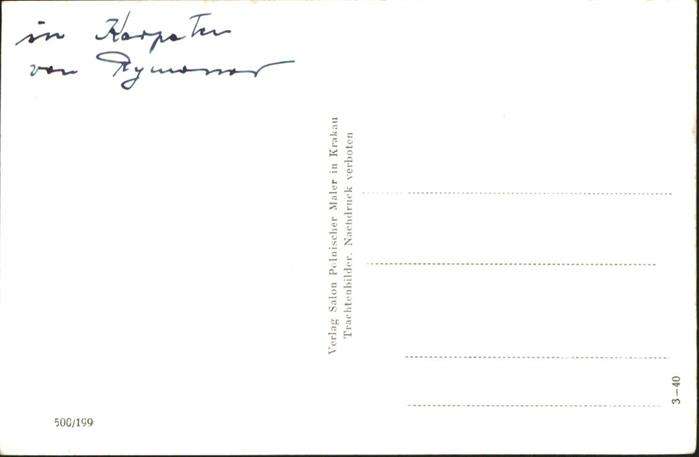 in Karpaten
von Rymanow
Verlag Salon Polnischer Maler in Krakau
Trachtenbilder. Nachdruck verboten
3—40
500/199